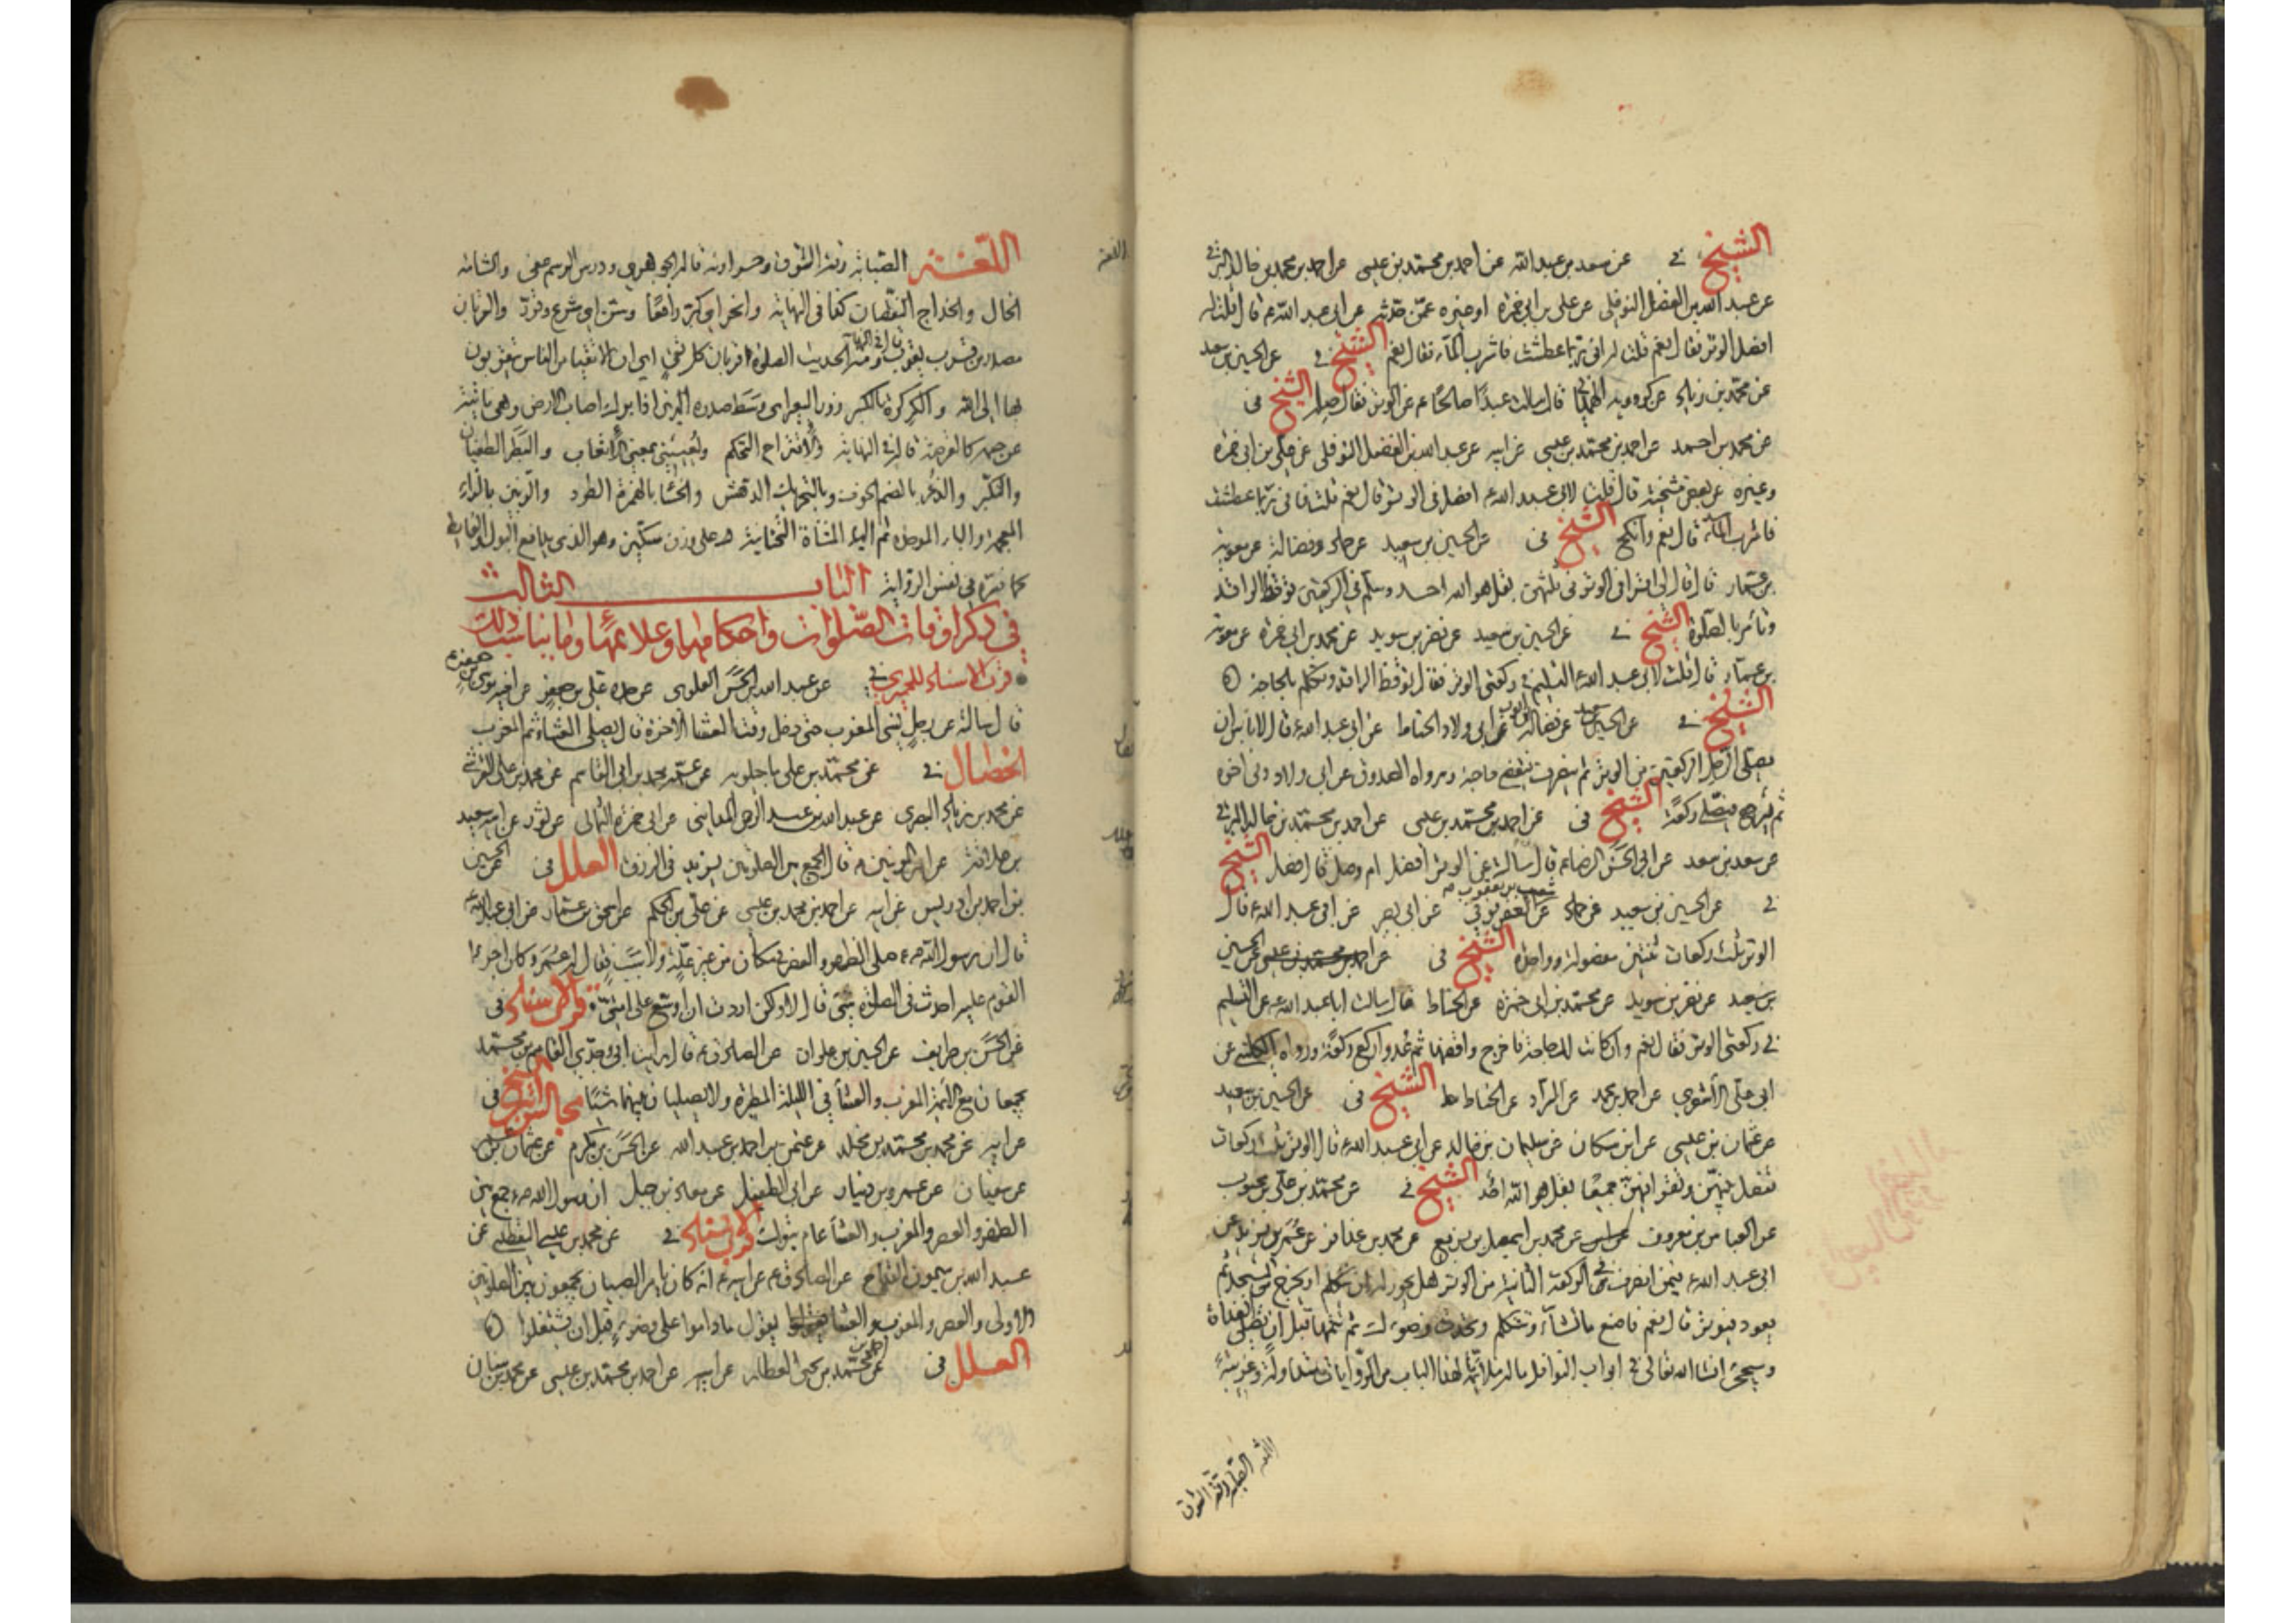 الشيخ في عن سعد بن عبد الله عن احمد بن محمد بن عيسى عن احمد بن محمد بن خالد البرقي
عن عبد الله بن الفضل النوفلي عن علي بن ابي حمزة او غيره عمن حدثه عن ابي عبد الله ع قال قلت له
افصل الوتر فقال نعم قلت له اني ربما عطشت فاشرب الماء فقال نعم الشيخ في عن الحسين بن سعيد
عن محمد بن زياد عن كردويه الهمداني قال سالت عبدا صالحا ع عن الوتر فقال صله الشيخ في
عن محمد بن احمد عن احمد بن محمد بن عيسى عن ابيه عن عبد الله بن الفضل النوفلي عن علي بن ابي حمزة
وغيره عن بعض مشيخته قال قلت لابي عبد الله ع افصل في الوتر قال نعم قلت فاني ربما عطشت
فاشرب الماء قال نعم وانكح الشيخ في عن الحسين بن سعيد عن حماد وفضالة عن معوية
بن عمار قال قال لي اقرا في الوتر في ثلثهن بقل هو الله احد وسلم في الركعتين توقظ الراقد
وتامر بالصلوة الشيخ في عن الحسين بن سعيد عن نضر بن سويد عن محمد بن ابي حمزة عن معوية
بن عمار قال قلت لابي عبد الله ع التسليم في ركعتي الوتر فقال توقظ الراقد وتكلم بالحاجة
الشيخ في عن الحسين بن سعيد عن فضالة بن ايوب عن ابي ولاد الحناط عن ابي عبد الله ع قال لا باس ان
يصلي الرجل الركعتين من الوتر ثم ينصرف فيقضي حاجته ورواه الصدوق عن ابي ولاد وفي اخره
ثم يرجع فيصلي ركعة الشيخ في عن احمد بن محمد بن عيسى عن احمد بن محمد بن خالد البرقي
عن سعد بن سعد عن ابي الحسن الرضا ع قال سالته عن الوتر افصل ام وصل قال فصل الشيخ
في عن الحسين بن سعيد عن حماد عن شعيب بن يعقوب العقرقوفي عن ابي بصير عن ابي عبد الله ع قال
الوتر ثلث ركعات ثنتين مفصولة وواحدة الشيخ في عن احمد بن محمد بن عيسى عن الحسين
بن سعيد عن نضر بن سويد عن محمد بن ابي حمزة عن الحناط قال سالت ابا عبد الله ع عن التسليم
في ركعتي الوتر فقال نعم وان كانت لك حاجة فاخرج واقضها ثم عد واركع ركعة ورواه الكليني عن
ابي علي الاشعري عن احمد بن محمد عن البراد عن الحناط الشيخ في عن الحسين بن سعيد
عن عثمان بن عيسى عن ابن مسكان عن سليمان بن خالد عن ابي عبد الله ع قال الوتر ثلث ركعات
تفصل بينهن وتقرا فيهن جميعا بقل هو الله احد الشيخ في عن محمد بن علي بن محبوب
عن العباس بن معروف عن محمد بن اسمعيل بن بزيع عن محمد بن عذافر عن عمر بن يزيد عن
ابي عبد الله ع فيمن انصرف في الركعة الثانية من الوتر هل يجوز له ان يتكلم او يخرج من المسجد ثم
يعود فيوتر قال نعم فاصنع ما تشاء وتتكلم وتحدث وضوءك ثم تتمها قبل ان تصلي الغداة
وسيجئ انشا الله تعالى في ابواب النوافل
اللغة الصبابة رقة الشوق
اللغة الصبابة رقة الشوق وحرارته قاله الجوهري ودرس الرسم عفى والشامة
الخال والخداج النقصان كذا في النهاية
مصدر من قرب يقرب ومنه الحديث الصلوة قربان كل تقي اي ان الاتقياء من الناس يتقربون
بها الى الله والكركرة بالكسر زور البعير الذي اذا برك اصاب الارض وهي ناتئة
عن جسمه كالقرصة قاله في النهاية والاقتراح التحكم والبطر الطغيان
والتكبر والذعر بالضم الخوف وبالتحريك الدهش والخسا بالهمزة الطرد والزبين بالزاء
المعجمة والباء الموحدة ثم الياء المثناة التحتانية على وزن سكين وهو الذي يدافع البول والغايط
كما فسره في نفس الرواية الباب الثالث
في ذكر اوقات الصلوات واحكامها وعلاماتها وما يناسب ذلك
قرب الاسناد للحميري في عن عبد الله بن الحسن العلوي عن جده علي بن جعفر عن اخيه موسى بن جعفر ع
قال سالته عن رجل نسي المغرب حتى دخل وقت العشا الاخرة قال يصلي العشاء ثم المغرب
الخصال في عن محمد بن علي ماجلويه عن عمه محمد بن ابي القاسم عن محمد بن علي القرشي
عن محمد بن زياد البصري عن عبد الله بن عبد الرحمن المدايني عن ابي حمزة الثمالي عن ثور بن سعيد
عن امير المؤمنين ع قال الجمع بين الصلوتين يزيد في الرزق العلل في عن الحسين
بن احمد بن ادريس عن ابيه عن احمد بن محمد بن عيسى عن علي بن الحكم عن اسحق بن عمار عن ابي عبد الله ع
قال ان رسول الله ص صلى الظهر والعصر في مكان من غير علة ولا سبب فقال له عمر وكان اجرء
القوم عليه احدث في الصلوة شئ قال لا ولكن اردت ان اوسع على امتي قرب الاسناد في
عن الحسن بن طريف عن الحسين بن علوان عن الصادق ع قال رايت ابي وجدي القاسم بن محمد
يجمعان مع الائمة المغرب والعشا في الليلة المطيرة ولا يصليان بينهما شيئا مجالس الشيخ في
عن ابيه عن محمد بن محمد بن مخلد عن عثمن بن احمد بن عبد الله عن الحسن بن مكرم عن عثمان بن عمر
عن سفيان عن عمرو بن دينار عن ابي الطفيل عن معاذ بن جبل ان رسول الله ص جمع بين
الظهر والعصر والمغرب والعشا عام تبوك قرب الاسناد في عن محمد بن عيسى اليقطيني عن
عبد الله بن ميمون القداح عن الصادق ع عن ابيه ع انه كان يامر الصبيان يجمعون بين الصلوتين
الاولى والعصر والمغرب والعشا يقول ما داموا على وضوء قبل ان يشتغلوا
العلل في عن احمد بن محمد بن يحيى العطار عن ابيه عن احمد بن محمد بن عيسى عن محمد بن سنان